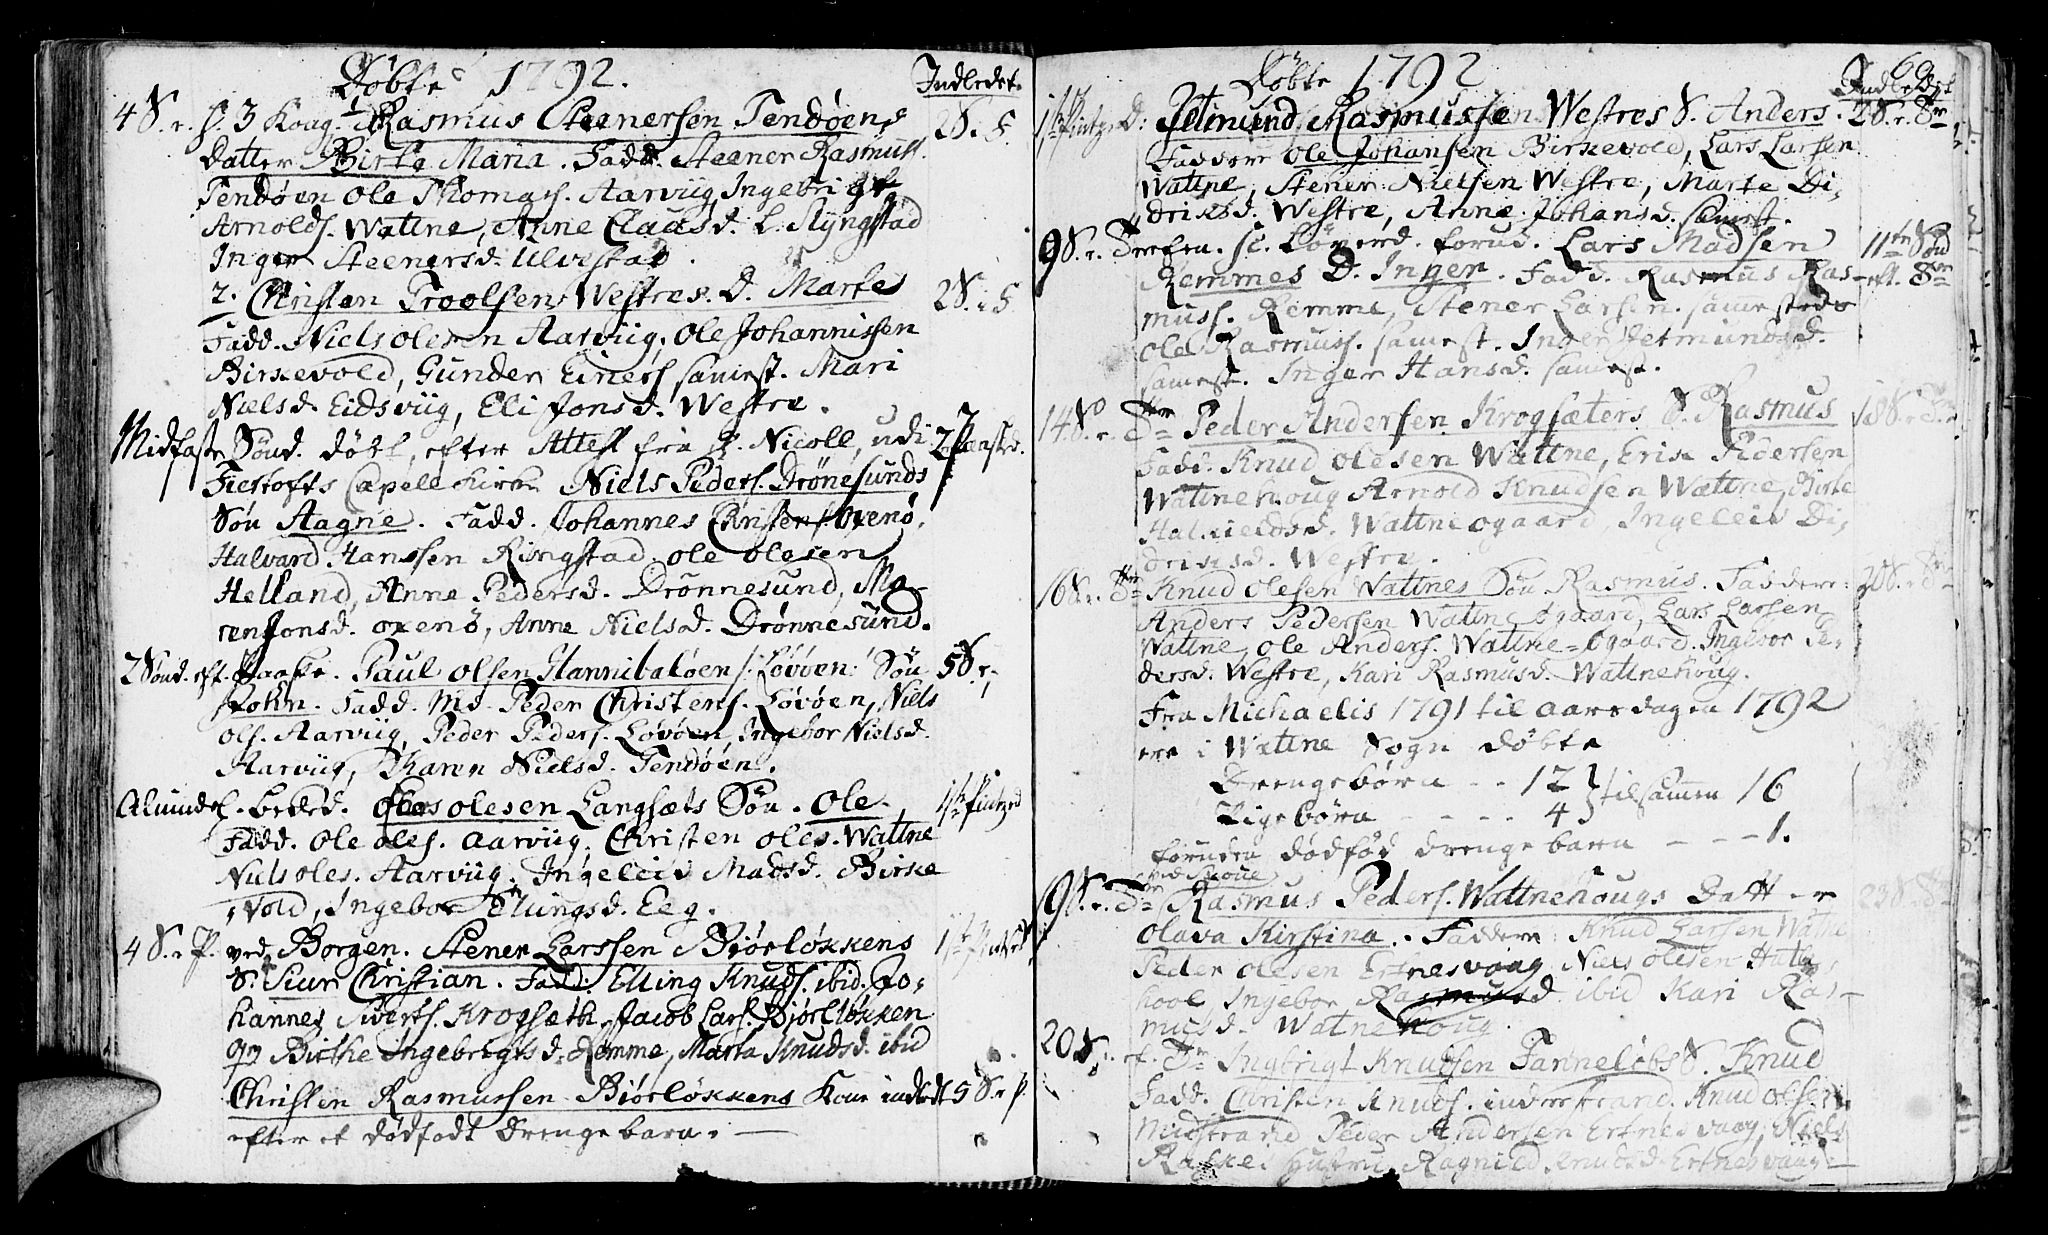 Döbte 1792. Indledet.
4 S. r. h. 3 Kong. 1 Rasmus Steenersen Tendøens 2 S. r. F.
datter Birte Maria. Fadd. Steener Rasmuss.
Tendøen Ole Thomas. Aarviig, Ingebrigt
Arnolds. Wattne, Anne Claasd. L. Ryngstad
Inger Steenersd. Ulvestad.
2. Christen Troelsen Westres D. Marte 2 S. i F
Fadd. Niels olesen Aarviig, Ole Johannissen
Birkevold, Gunder Einers. samest. Mari
Nielsd. Eidsviig, Eli Jonsd. Westre.
Midfaste Sönd. döbt, efter Attest fra H. Nicoll, udi
Fiestofts Capell Kirke Niels Peders. Drönesunds
Sön Aagne. Fadd. Johannes Christens. Oxenö,
Halvard Hanssen Ringstad, ole olesen
Helland, Anne Pedersd. Drönnesund, Ma-
ren Jonsd. oxenö, Anne Nielsd. Drönnesund.
2 Sönd. eft. Paaske. Paul olsen Hannibaløen /: Løvøen: Sön 5 S. r.
John. Fadd. Md. Peder Christens. Løvøen, Niels
ols. Aarviig, Peder Peders. Løvøen, Ingebor Nielsd.
Aarviig, Karen Nielsd. Tendøen.
Almindel. Beded. olesen Langsæts Sön. Ole.
Fadd. Ole oles. Aarviig, Christen oles. Wattne
Niels oles. Aarviig, Ingeleiv Madsd. Birke
vold, Ingebor Ellingsd. Eeg.
4 S. r. P. ved Borgen. Stener Larssen Biørløkkens
S. Siur Christian. Fadd. Elling Knuds. ibid. Jo-
hannes Siverts. Krogsæth, Jacob Lars. Biørløkken
Birthe Ingebrigtsd. Remme, Marta Knudsd. ibid
Christen Rasmussen Biørløkkens Kone indledt 5 S. r. P.
efter et dödfödt drengebarn. —
Döbte 1792 Indledet
D: Jetmund Rasmusse Westres S. Anders. 2 S. r. Tr
Faddere ole Johansen Birkevold, Lars Larsen
Wattne, Stener Nielsen Westre, Marte Di-
driksd. Westre, Anne Johansd. samest.
9 S. r. Lars Madsen 11te Sönd
Remmes D. Inger. Fadd. Rasmus Ras- eft. Tr
muss. Remme, Stener Larsen. samesteds
ole Rasmuss. samest. Inger Jetmundsd.
samest. Inger Hansd. samest.
14 S. r. Tr Peder Andersen Krogsæters S. Rasmus 18 S. r. Tr
Fadd. Knud olesen Wattne, Erik Pedersen
Wattnehoug Arnold Knudsen Wattne, Birte
Wattneogaard Ingeleiv Di-
driksd. Westre.
16 S. r. Tr Knud olesen Wattnes Sön Rasmus. Faddere: 20 S. r. Tr
Anders Pedersen Wattneogaard, Lars Larsen
Wattne, ole Anders. Wattne-ogaard. Ingebor Pe-
dersd. Westre, Kari Rasmusd. Wattnehoug.
Fra Michaelis 1791 til aarsdagen 1792
ere i Wattne Sogn döbte
Drengebörn - - 12 } tilsamen 16
Pigebörn - - - - 4
foruden dödföd drengebarn - - - 1.
9 S. r. Tr Rasmus Peders. Wattnehougs Datter 23 S. r. Tr
olava Kirstina. Faddere: Knud Larsen Wattne
Peder olesen Ertnesvaag Niels olesen
Ingebor Rasmusd. ibid Kari Ras-
musd. Watnehoug.
20 S. ef. Tr Ingbrigt Knudsen Farnelöbs S. Knud
Fadd. Christen Knuds. indrestrand. Knud olsen
Midstrand Peder Andersen Ertnesvaag, Niels
Hustru, Ragnild Knudsd. Ertnesvaag —